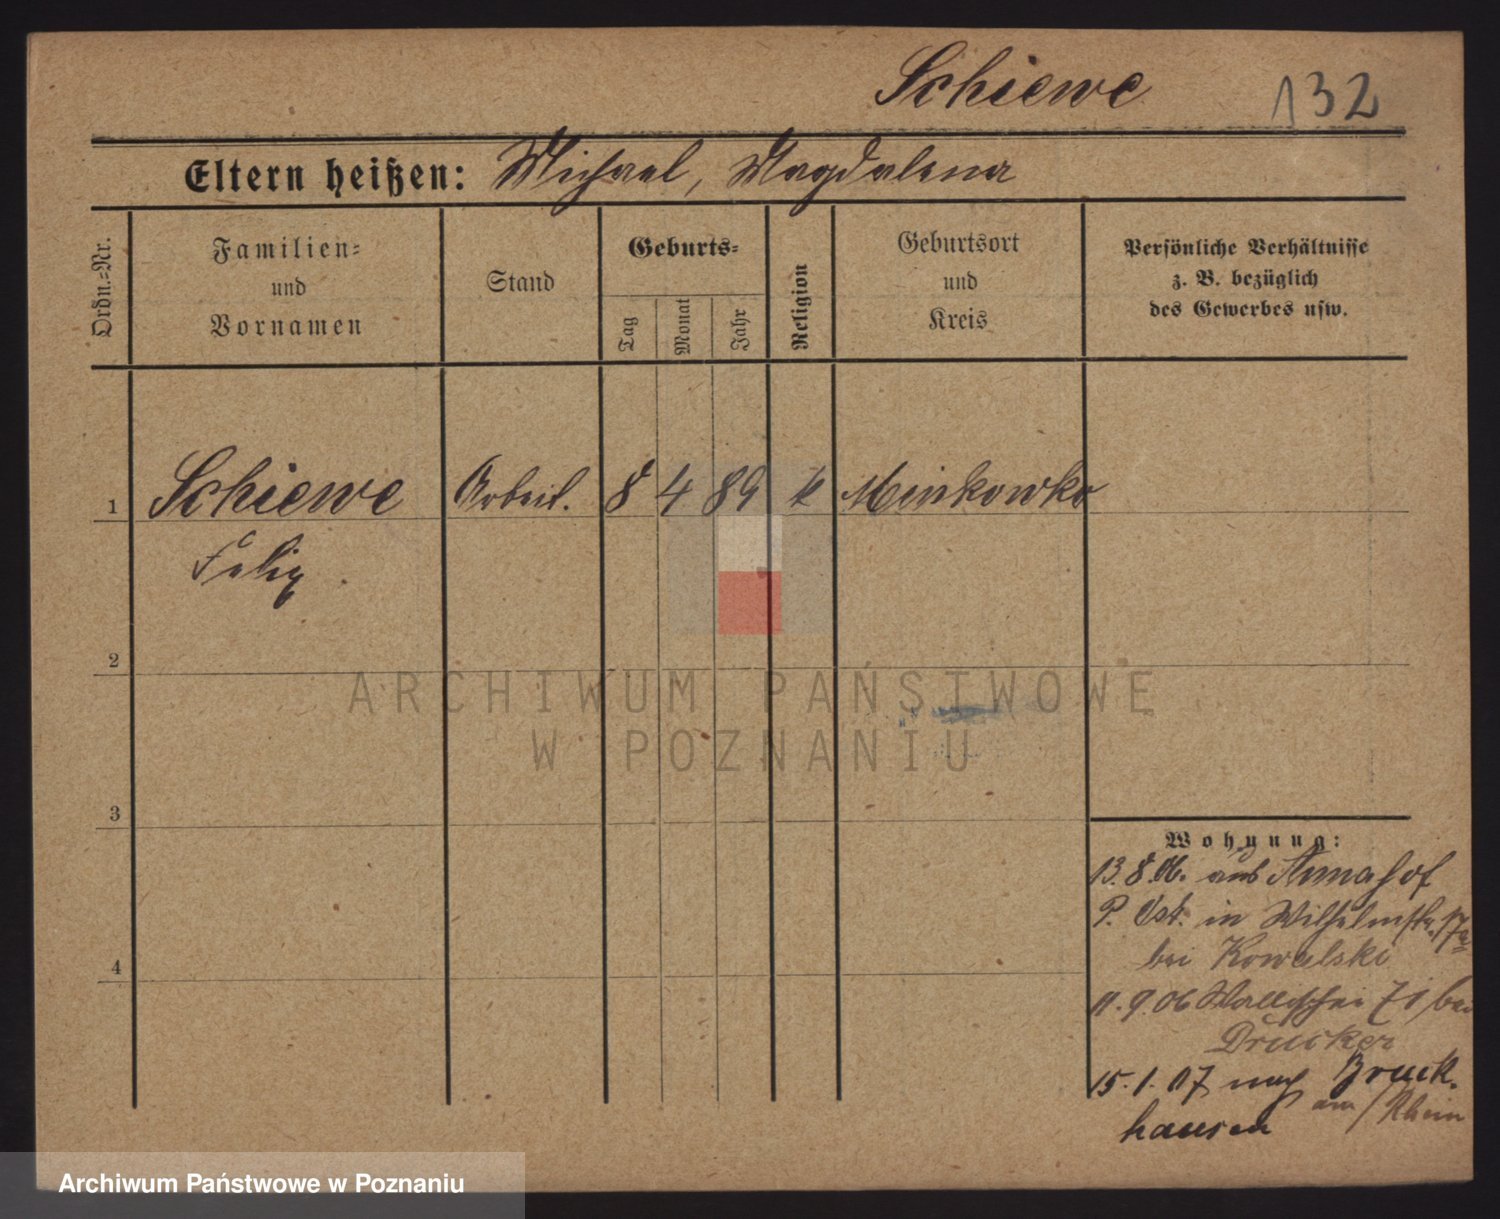 Schiewe 132
Eltern heißen: Michael, Magdalena
Ordn.-Nr.
Familien-
und
Vornamen
Stand
Geburts-
Tag
Monat
Jahr
Religion
Geburtsort
und
Kreis
Persönliche Verhältnisse
z. B. bezüglich
des Gewerbes usw.
1 Schiewe Arbeit. 8 4 89 k Minkowko
Felix
2
3
4
Wohnung:
13.8.06. aus Annahof
P. Ost. in Wilhelmstr. 17a
bei Kowalski
11.9.06 Wallischei 71 bei
Drucker
15.1.07 nach Bruck-
hausen am/Rhein
ARCHIWUM PAŃSTWOWE
W POZNANIU
Archiwum Państwowe w Poznaniu